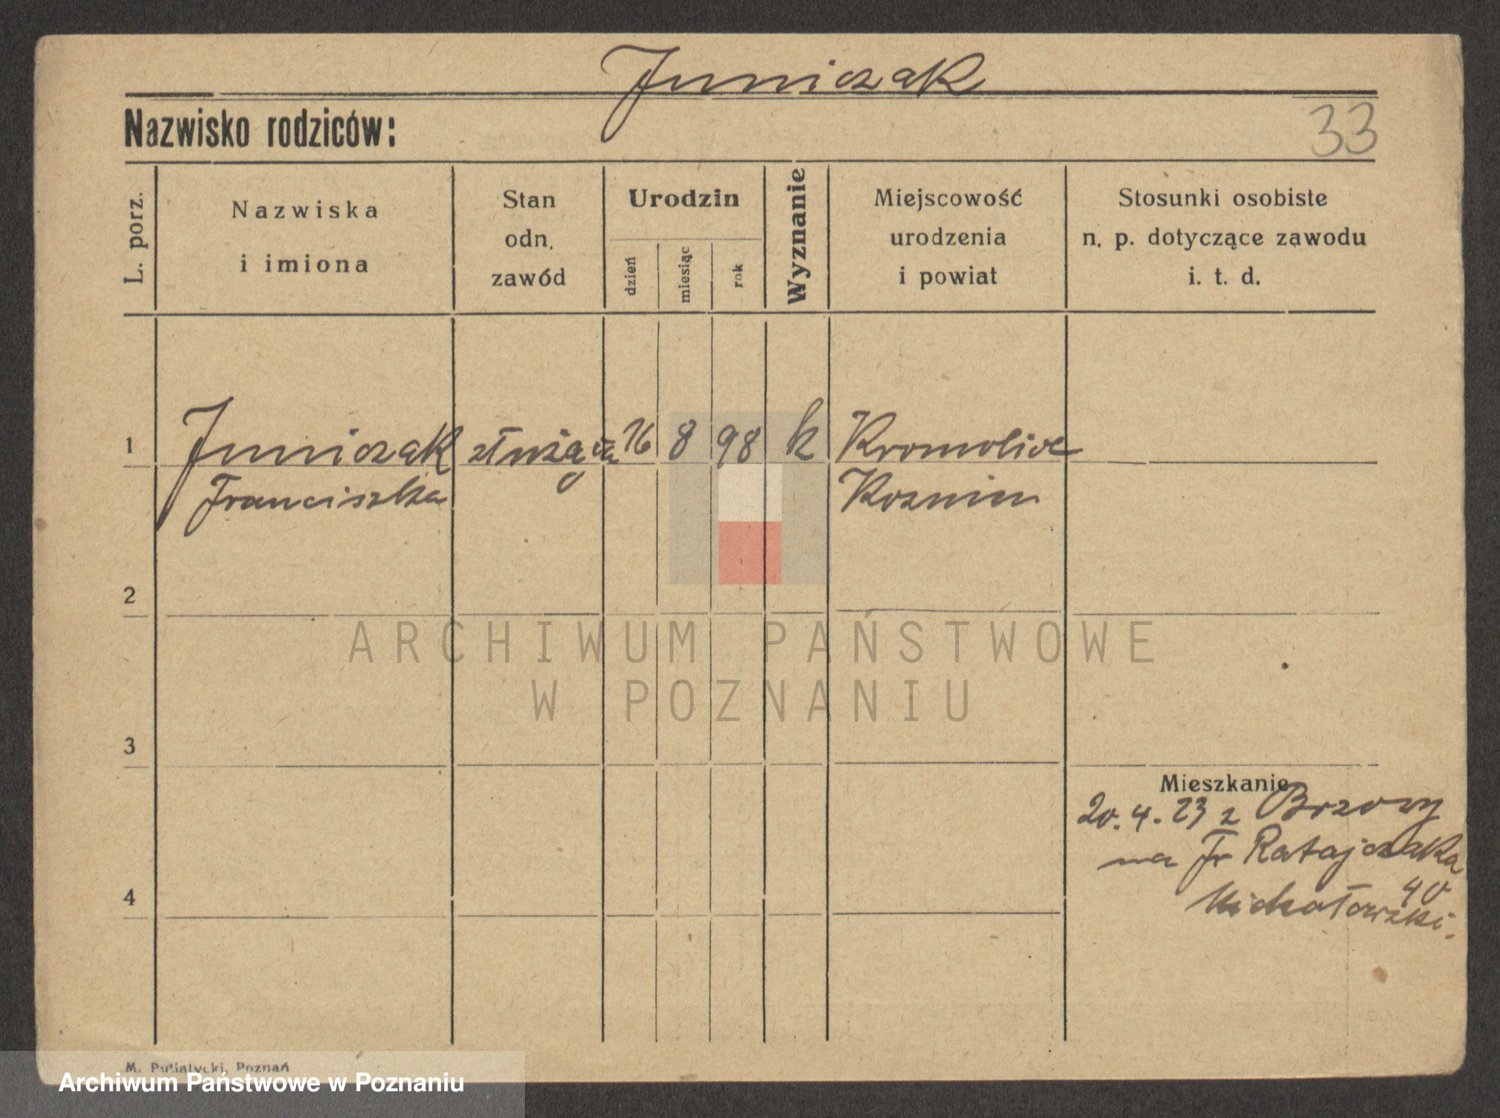 Juniczak
Nazwisko rodziców:
33
L. porz.
Nazwiska
i imiona
Stan
odn.
zawód
Urodzin
dzień
miesiąc
rok
Wyznanie
Miejscowość
urodzenia
i powiat
Stosunki osobiste
n. p. dotyczące zawodu
i. t. d.
1 Juniczak służąca 16 8 98 k Kromolice
Franciszka Kozmin
2
ARCHIWUM PAŃSTWOWE
W POZNANIU
3
Mieszkanie
20.4.23 z Brzozy
na Fr Ratajczaka
40
Michałowski.
4
M. Putiatycki, Poznań
Archiwum Państwowe w Poznaniu